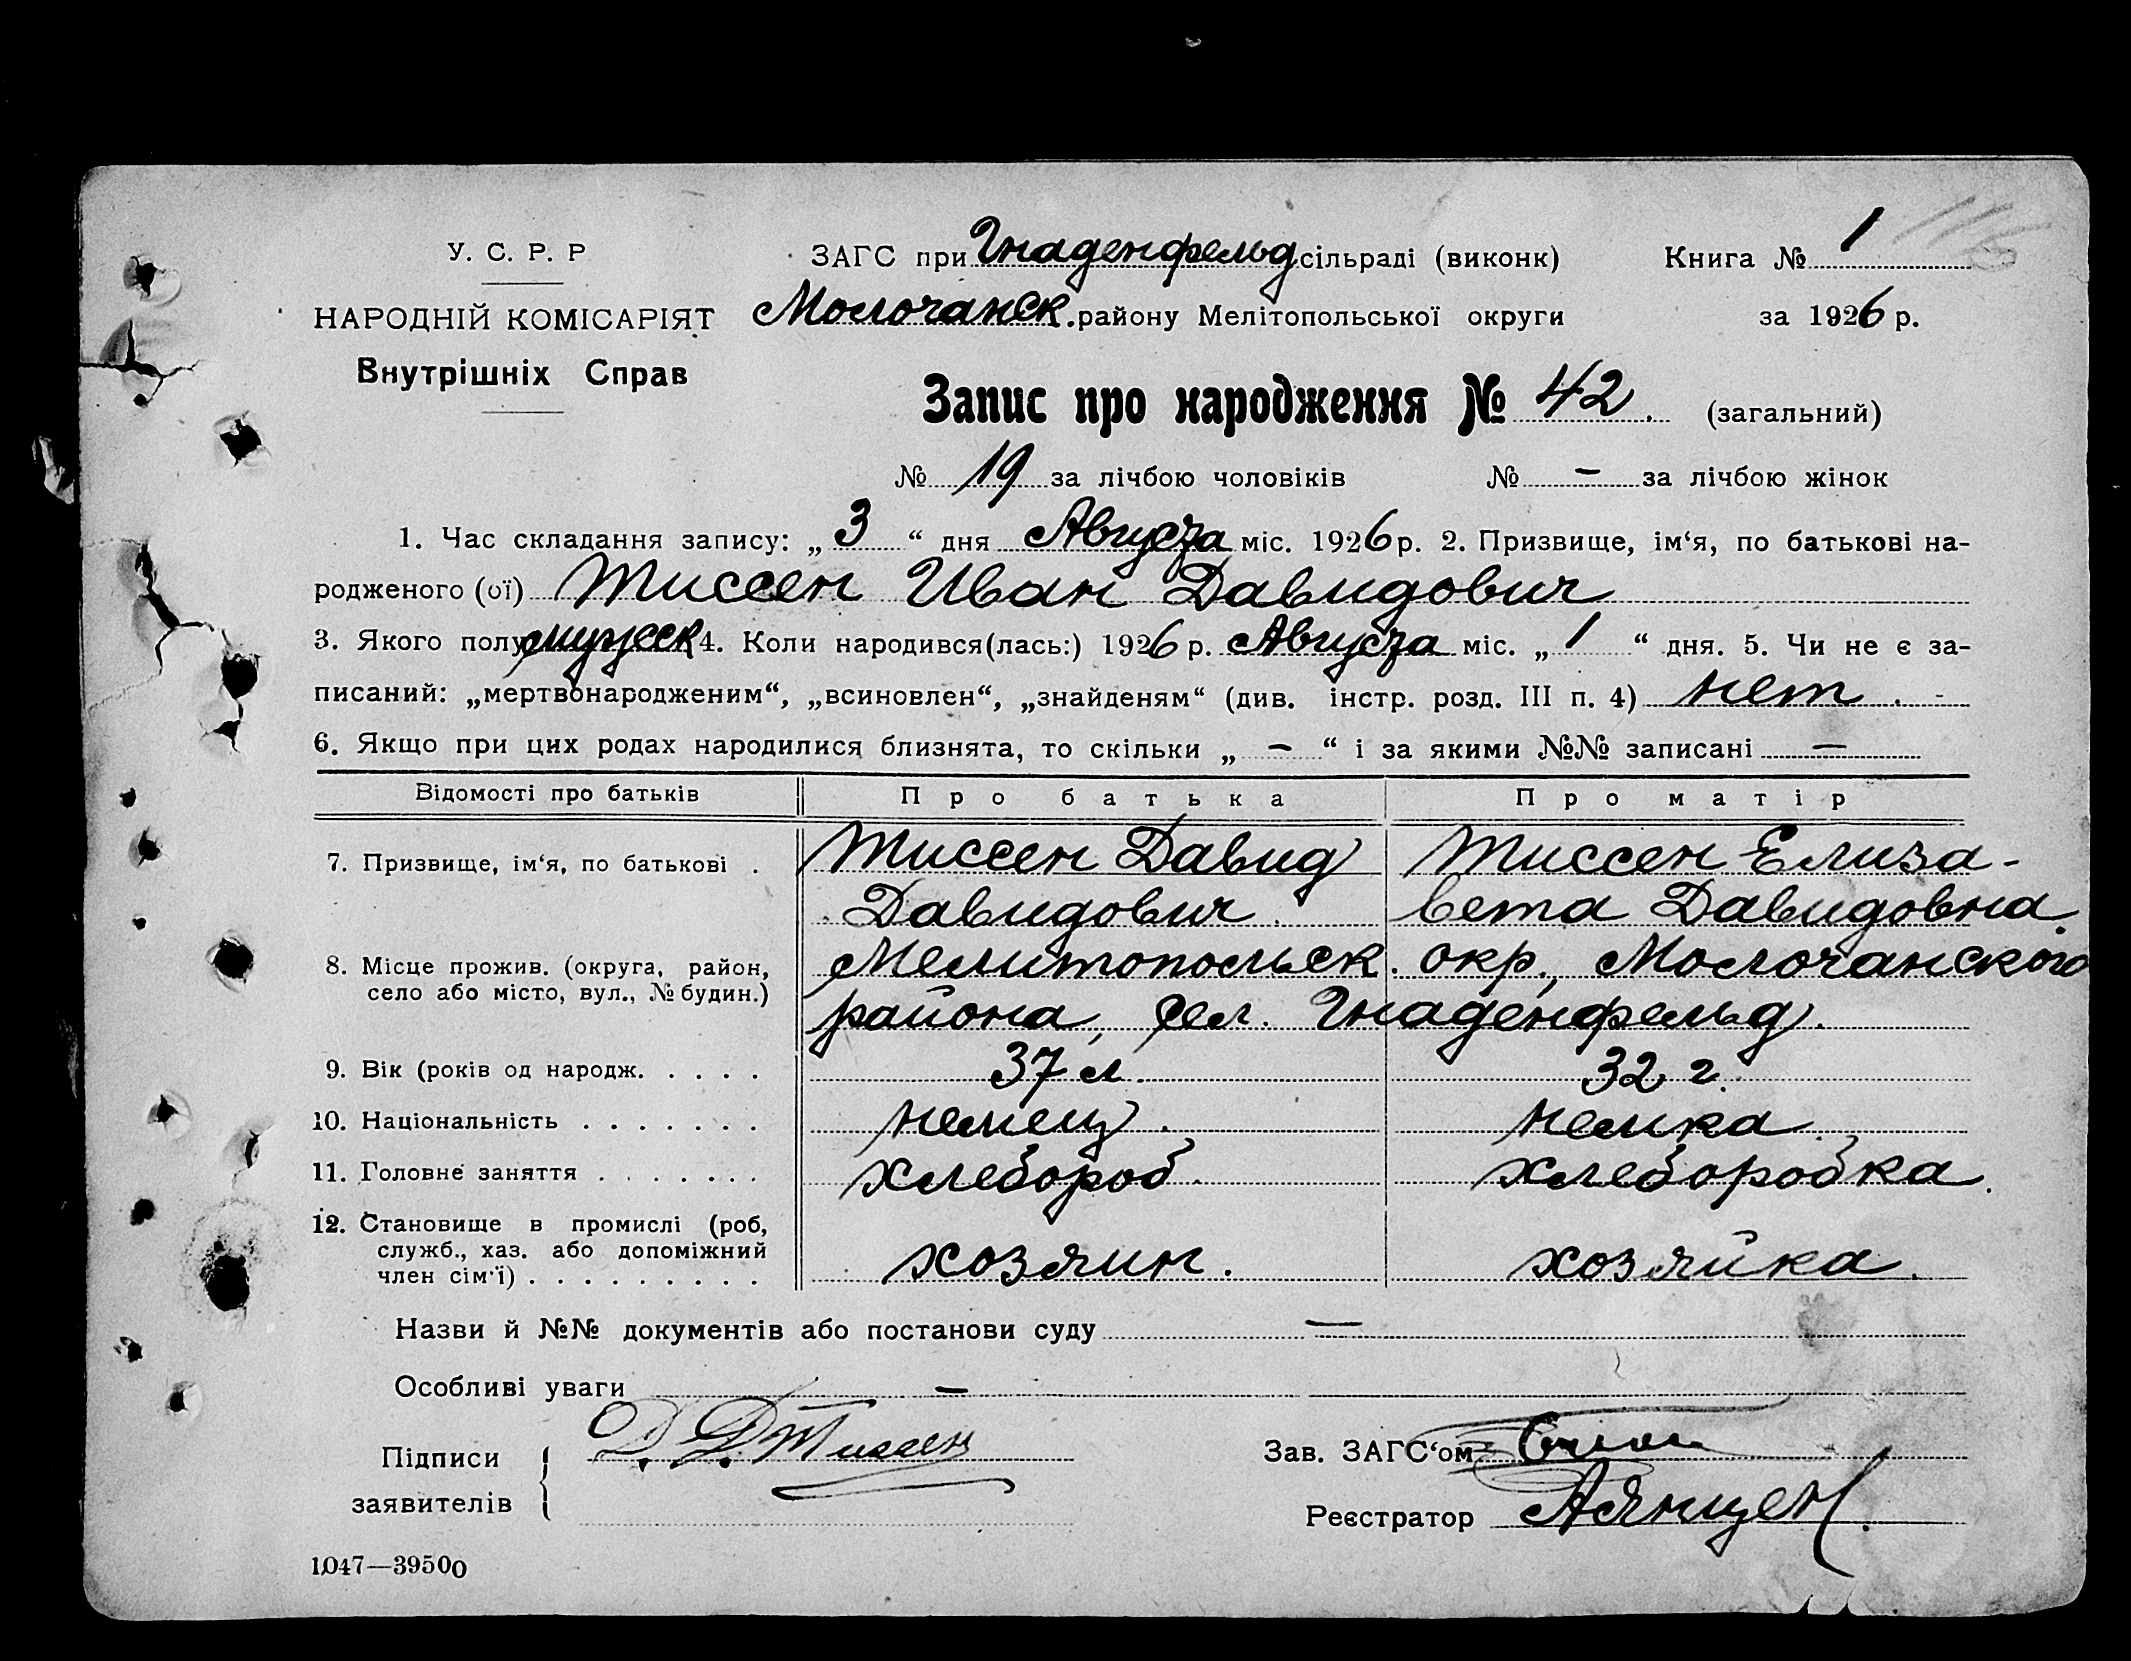 У. С. Р. Р
НАРОДНІЙ КОМІСАРІЯТ
Внутрішніх Справ
ЗАГС при Гнаденфельд сільраді (виконк)
Молочанск. району Мелітопольської округи
Книга № 1
за 1926 р.
Запис про народження № 42. (загальний)
№ 19 за лічбою чоловіків № – за лічбою жінок
1. Час складання запису: „ 3 “ дня Августа міс. 1926 р. 2. Призвище, ім‘я, по батькові на-
родженого (ої) Тиссен Иван Давидович
3. Якого полу мужск 4. Коли народився(лась:) 1926 р. Августа міс. „ 1 “ дня. 5. Чи не є за-
писаний: „мертвонародженим“, „всиновлен“, „знайденям“ (див. інстр. розд. III п. 4) нет.
6. Якщо при цих родах народилися близнята, то скільки „ – “ і за якими №№ записані —
Відомості про батьків Про батька Про матір
7. Призвище, ім‘я, по батькові . Тиссен Давид Тиссен Елиза-
Давидович. вета Давидовна.
8. Місце прожив. (округа, район, Мелитопольск. окр., Молочанского
село або місто, вул., № будин.) района, сел. Гнаденфельд.
9. Вік (років од народж. . . . . 37 л. 32 г.
10. Національність . . . . . . . немец. немка.
11. Головне заняття . . . . . . . хлебороб. хлеборобка.
12. Становище в промислі (роб,
служб., хаз. або допоміжний
член сім‘ї) . . . . . . . . . хозяин. хозяйка.
Назви й №№ документів або постанови суду —
Особливі уваги –
Підписи
заявителів
Д. Д. Тиссен
Зав. ЗАГС‘ом
Реєстратор АЯнцен.
1047—39500